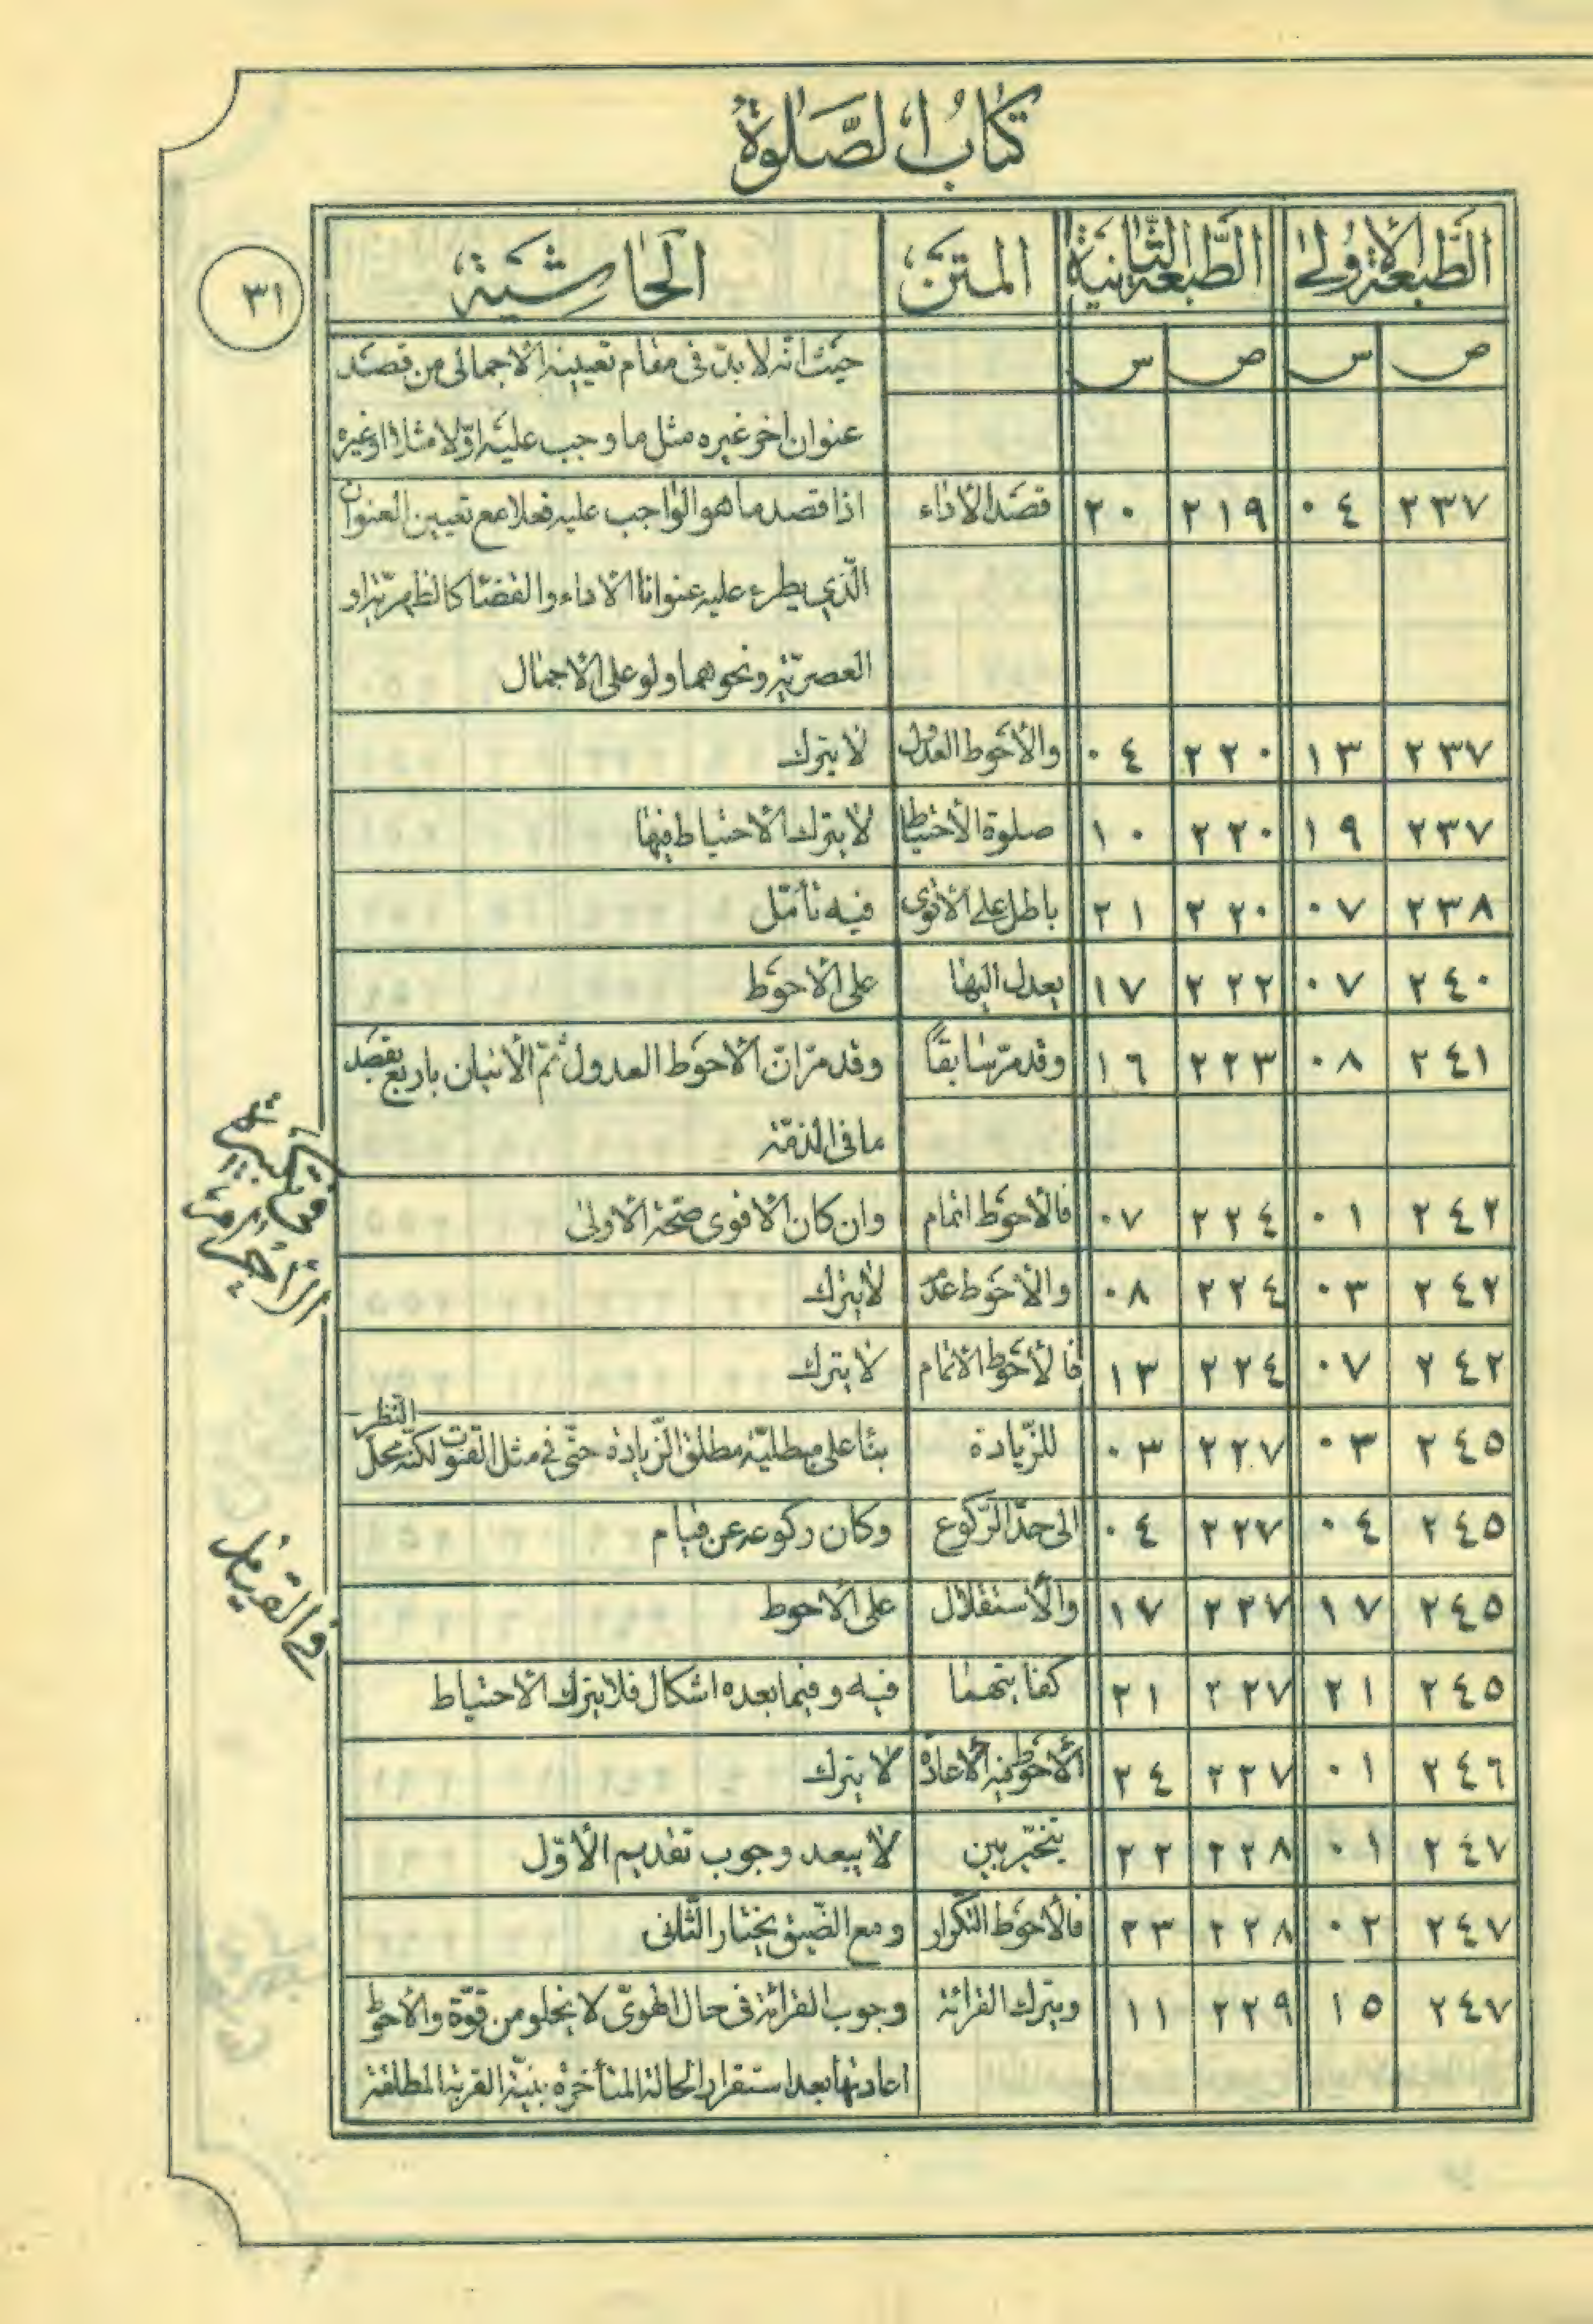 كتاب الصلوة
٣١
الطبعة الاولى الطبعة الثانية المتن الحاشية
ص س ص س حيث انه لا بد فى مقام تعيينه الاجمالى من قصد
عنوان اخر غيره مثل ما وجب عليه اولا مثلا او غيره
٢٣٧ ٠٤ ٢١٩ ٢٠ قصد الأداء اذا قصد ما هو الواجب عليه فعلا مع تعيين العنوان
الّذي يطرء عليه عنوانا الاداء والقضا كالظهريّة او
العصريّة ونحوهما ولو على الاجمال
٢٣٧ ١٣ ٢٢٠ ٠٤ والأحوط العدول لا يترك
٢٣٧ ١٩ ٢٢٠ ١٠ صلوة الأحتياط لا يترك الاحتياط فيها
٢٣٨ ٠٧ ٢٢٠ ٢١ باطل على الأقوى فيه تأمّل
٢٤٠ ٠٧ ٢٢٢ ١٧ يعدل اليها على الاحوط
٢٤١ ٠٨ ٢٢٣ ١٦ وقد مرّ سابقاً وقد مرّ انّ الاحوط العدول ثمّ الأتيان باربع بقصد
ما فى الذمّة
٢٤٢ ٠١ ٢٢٤ ٠٧ فالأحوط اتمام وان كان الاقوى صحّة الاولى
٢٤٢ ٠٣ ٢٢٤ ٠٨ والاحوط عدم لا يترك
٢٤٢ ٠٧ ٢٢٤ ١٣ فالأحوط الاتمام لا يترك
٢٤٥ ٠٣ ٢٢٧ ٠٣ للزّيادة بنا على مبطليّة مطلق الزّيادة حتّى في مثل القنوت لكنّه محل النظر
٢٤٥ ٠٤ ٢٢٧ ٠٤ الى حدّ الرّكوع وكان ركوعه عن قيام
٢٤٥ ١٧ ٢٢٧ ١٧ والأستقلال على الاحوط
٢٤٥ ٢١ ٢٢٧ ٢١ كفايتهما فيه وفيما بعده اشكال فلا يترك الاحتياط
٢٤٦ ٠١ ٢٢٧ ٢٤ الأحوط فيه الاعادة لا يترك
٢٤٧ ٠١ ٢٢٨ ٢٢ يتخيّر بين لا يبعد وجوب تقديم الأوّل
٢٤٧ ٠٢ ٢٢٨ ٢٣ فالأحوط التكرار ومع الضّيق يختار الثّانى
٢٤٧ ١٥ ٢٢٩ ١١ ويترك القرائة وجوب القرائة فى حال الهوىّ لا يخلو من قوّة والأحوط
اعادتها بعد استقرار الحالة المتأخرة بنيّة القربة المطلقة
في القيام